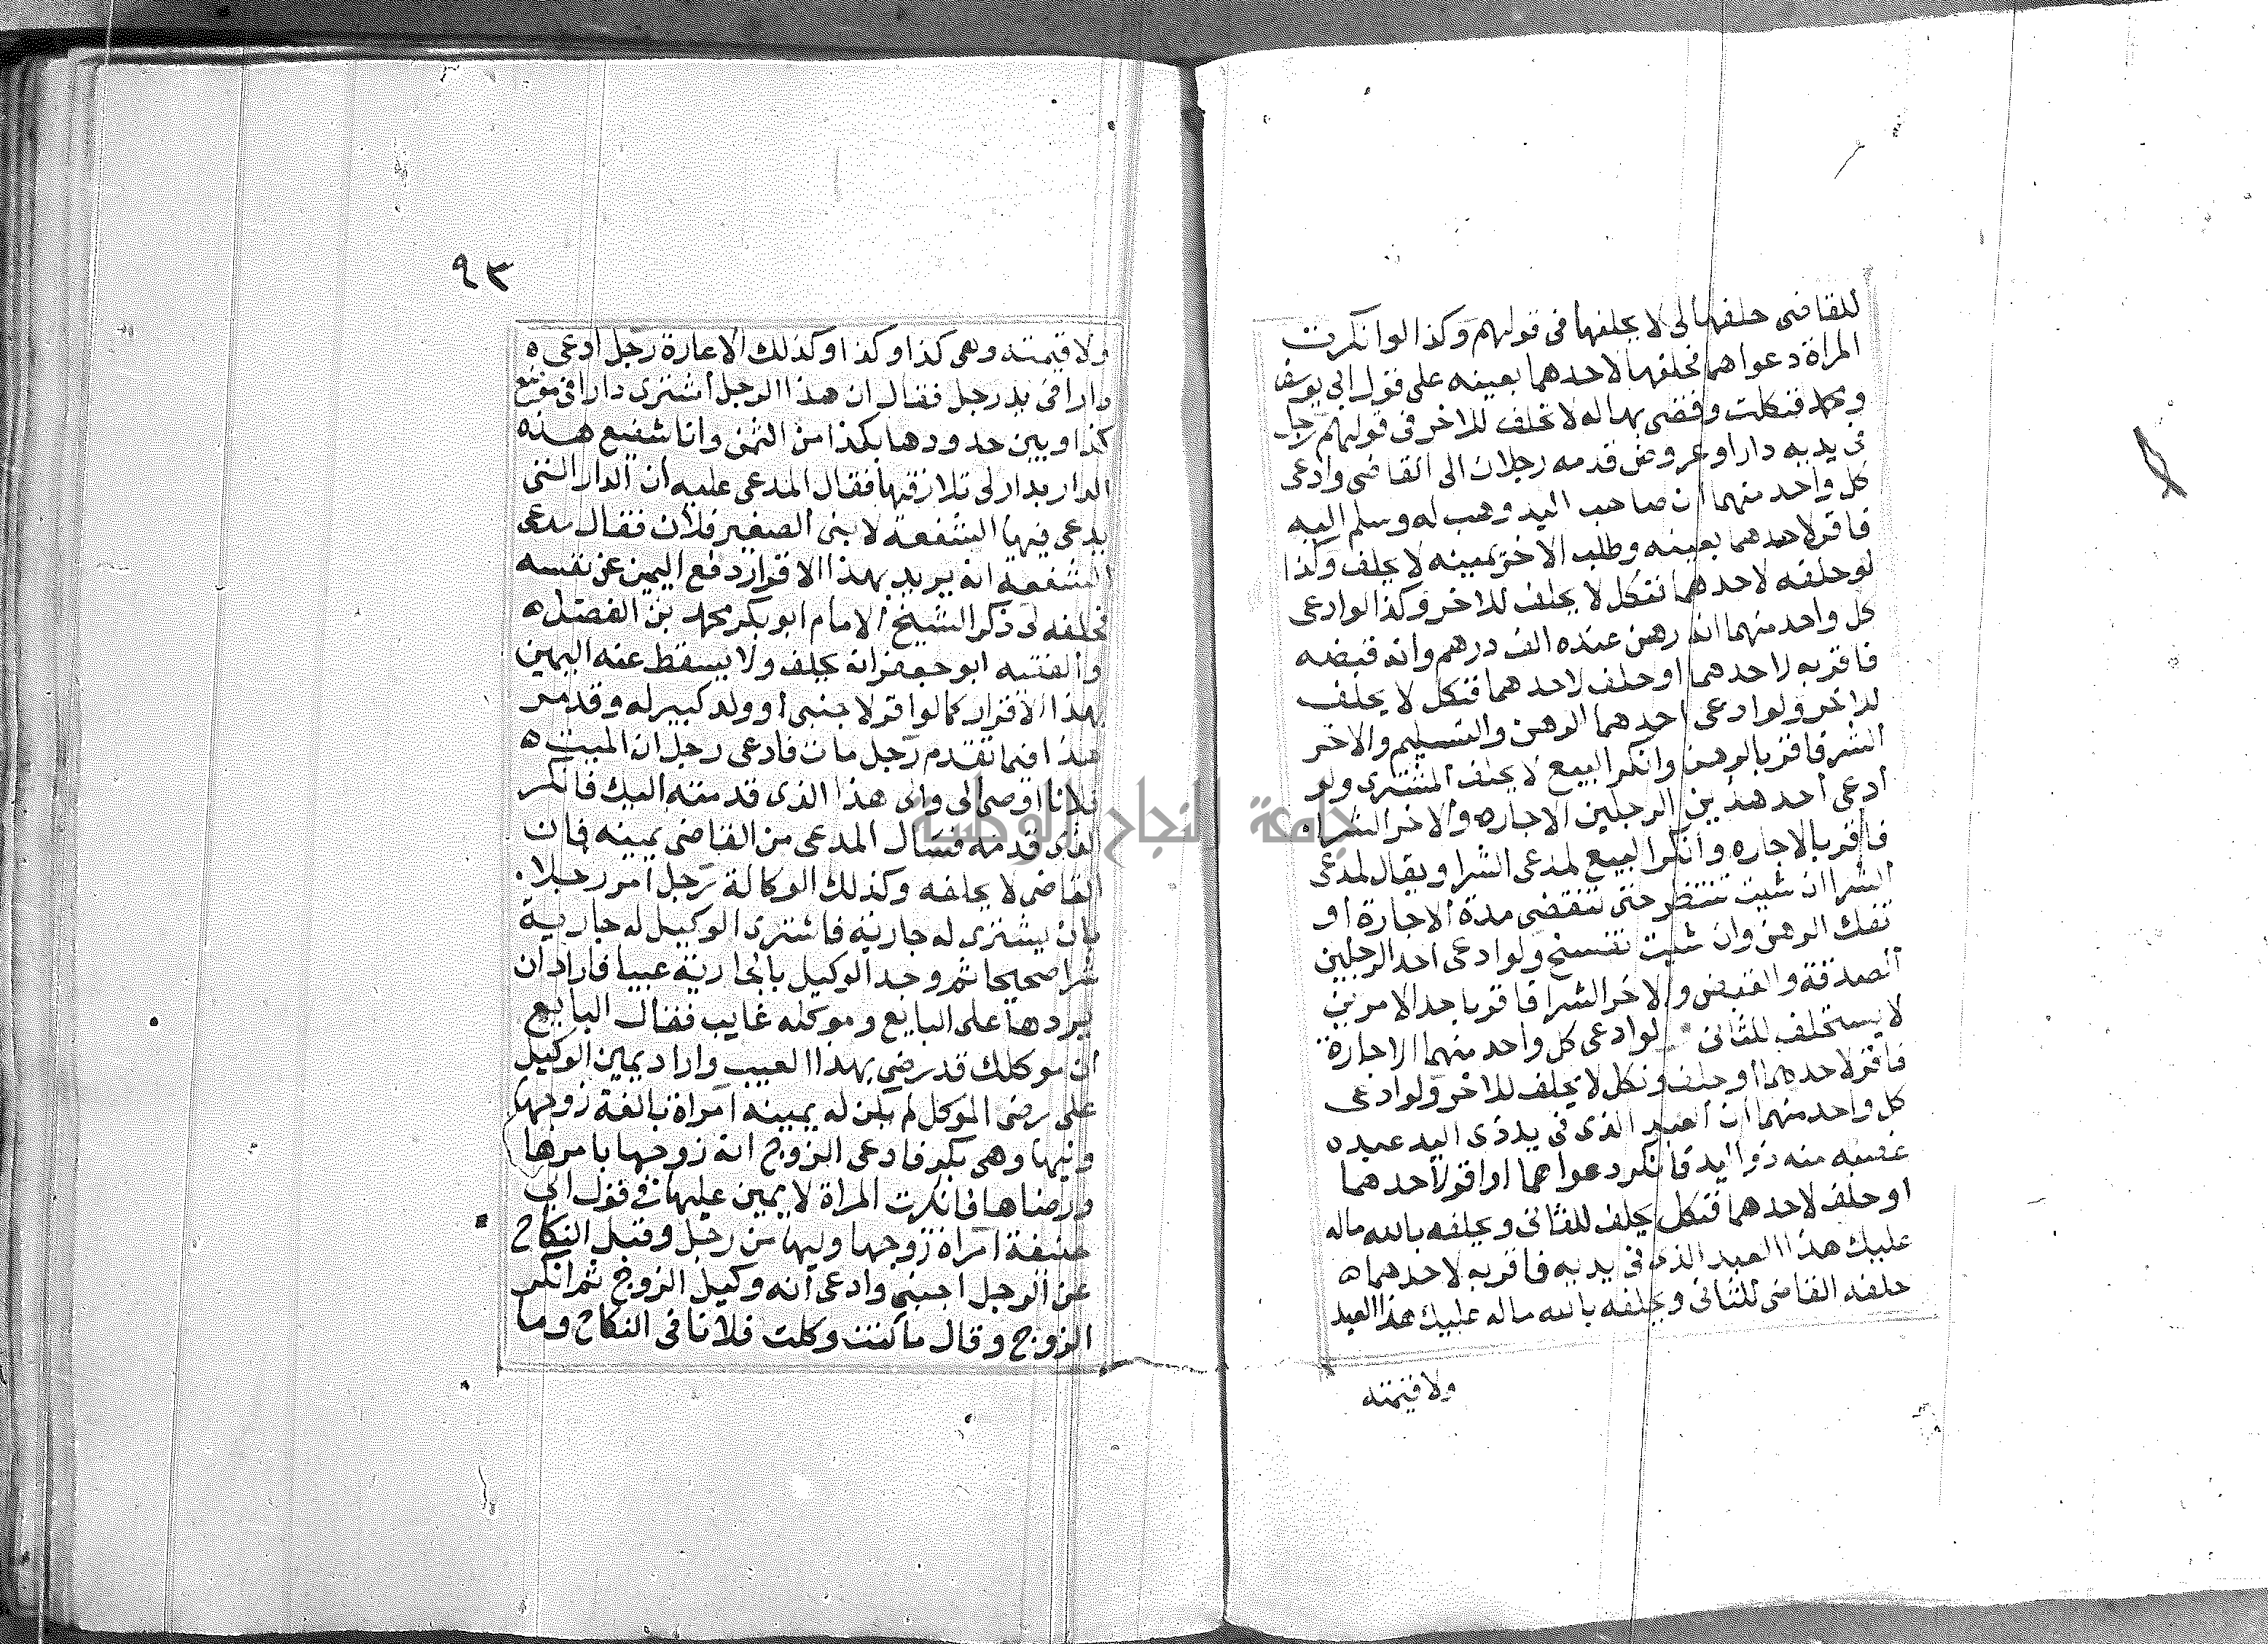 للقاضى حلفها لى لا يحلفها فى قولهم وكذا لو انكرت
المراة دعواهما فحلفها لاحدهما بعينه على قول ابى يوسف
ومحمد فنكلت وقضى بها له لا تحلف للاخر فى قولهم رجل
فى يديه دار او عروض قدمه رجلان الى القاضى وادعى
كل واحد منهما ان صاحب اليد وهب له وسلم اليه
فاقر لاحدهما بعينه وطلب الاخر يمينه لا يحلف وكذا
لو حلفه لاحدهما فنكل لا يحلف للاخر وكذا لو ادعى
كل واحد منهما انه رهن عنده الف درهم وانه قبضه
فاقر به لاحدهما او حلف لاحدهما فنكل لا يحلف
للاخر ولو ادعى احدهما الرهن والتسليم والاخر
الشرا فاقر بالرهن وانكر البيع لا يحلف المشترى ولو
ادعى احد هذين الرجلين الاجاره والاخر الشراء
فاقر بالاجاره وانكر البيع لمدعى الشرا ويقال لمدعى
الشرا ان شيت تنتظر حتى تنقضى مدة الاجارة او
تفك الرهن وان شيت تفسخ ولو ادعى احد الرجلين
الصدقة والقبض والاخر الشرا فاقر باحد الامرين
لا يستحلف للثانى ولو ادعى كل واحد منهما الاجارة
فاقر لاحدهما او حلف ونكل لا يحلف للاخر ولو ادعى
كل واحد منهما ان العبد الذى فى يد ذى اليد عبده
غصبه منه ذو اليد فانكر دعواهما او اقر لاحدهما
او حلف لاحدهما فنكل يحلف للثانى ويحلفه بالله ماله
عليك هذا العبد الذى فى يديه فاقر به لاحدهما
حلفه القاضى للثانى ويحلفه بالله ماله عليك هذا العبد
ولا قيمته
٩٣
ولا قيمته وهى كذا وكذا وكذلك الاعارة رجل ادعى
دارا فى يد رجل فقال ان هذا الرجل اشترى دارا فى موضع
كذا وبين حدودها بكذا من الثمن وانا شفيع هذه
الدار بدار لى تلازقها فقال المدعى عليه ان الدار التى
يدعى فيها الشفعة لابنى الصغير فلان فقال مدعى
الشفعة انه يريد بهذا الاقرار دفع اليمين عن نفسه
فحلفه لى ذكر الشيخ الامام ابو بكر محمد بن الفضل
والفقيه ابو جعفر انه يحلف ولا يسقط عنه اليمين
بهذا الاقرار كما لو اقر لاجنبى او ولد كبير له وقد مر
هذا فيما تقدم رجل مات فادعى رجل ان الميت
فلانا اوصى لى والى هذا الذى قدمته اليك فانكر
الذى قدمه فسال المدعى من القاضى يمينه فان
القاضى لا يحلفه وكذلك الوكالة رجل امر رجلا
بان يشترى له جارية فاشترى الوكيل له جارية
شرا صحيحا ثم وجد الوكيل بالجارية عيبا فاراد ان
يردها على البايع وموكله غايب فقال البايع
ان موكلك قد رضى بهذا العيب واراد يمين الوكيل
على رضى الموكل لم يكن له يمينه امراة بالغة زوجها
وليها وهى بكر فادعى الزوج انه زوجها بامرها
ورضاها فانكرت المراة لا يمين عليها فى قول ابى
حنيفة امراة زوجها وليها من رجل وقبل النكاح
عن الرجل اجنبى وادعى انه وكيل الزوج ثم انكر
الزوج وقال ما كنت وكلت فلانا فى النكاح وما
جامعة النجاح الوطنية